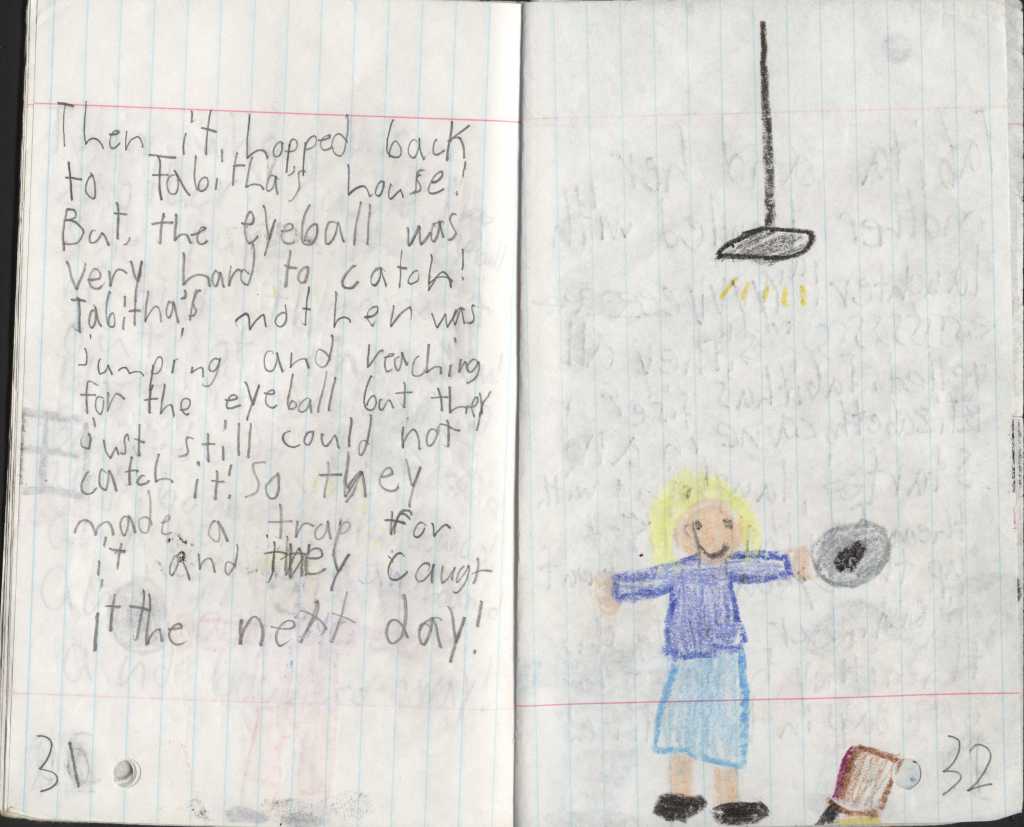 Then it hopped back
to Tabitha's house!
But, the eyeball was
very hard to catch!
Tabitha's mother was
jumping and reaching
for the eyeball but they
just still could not
catch it! So they
made a trap for
it and they caugt
it the next day!
31
32